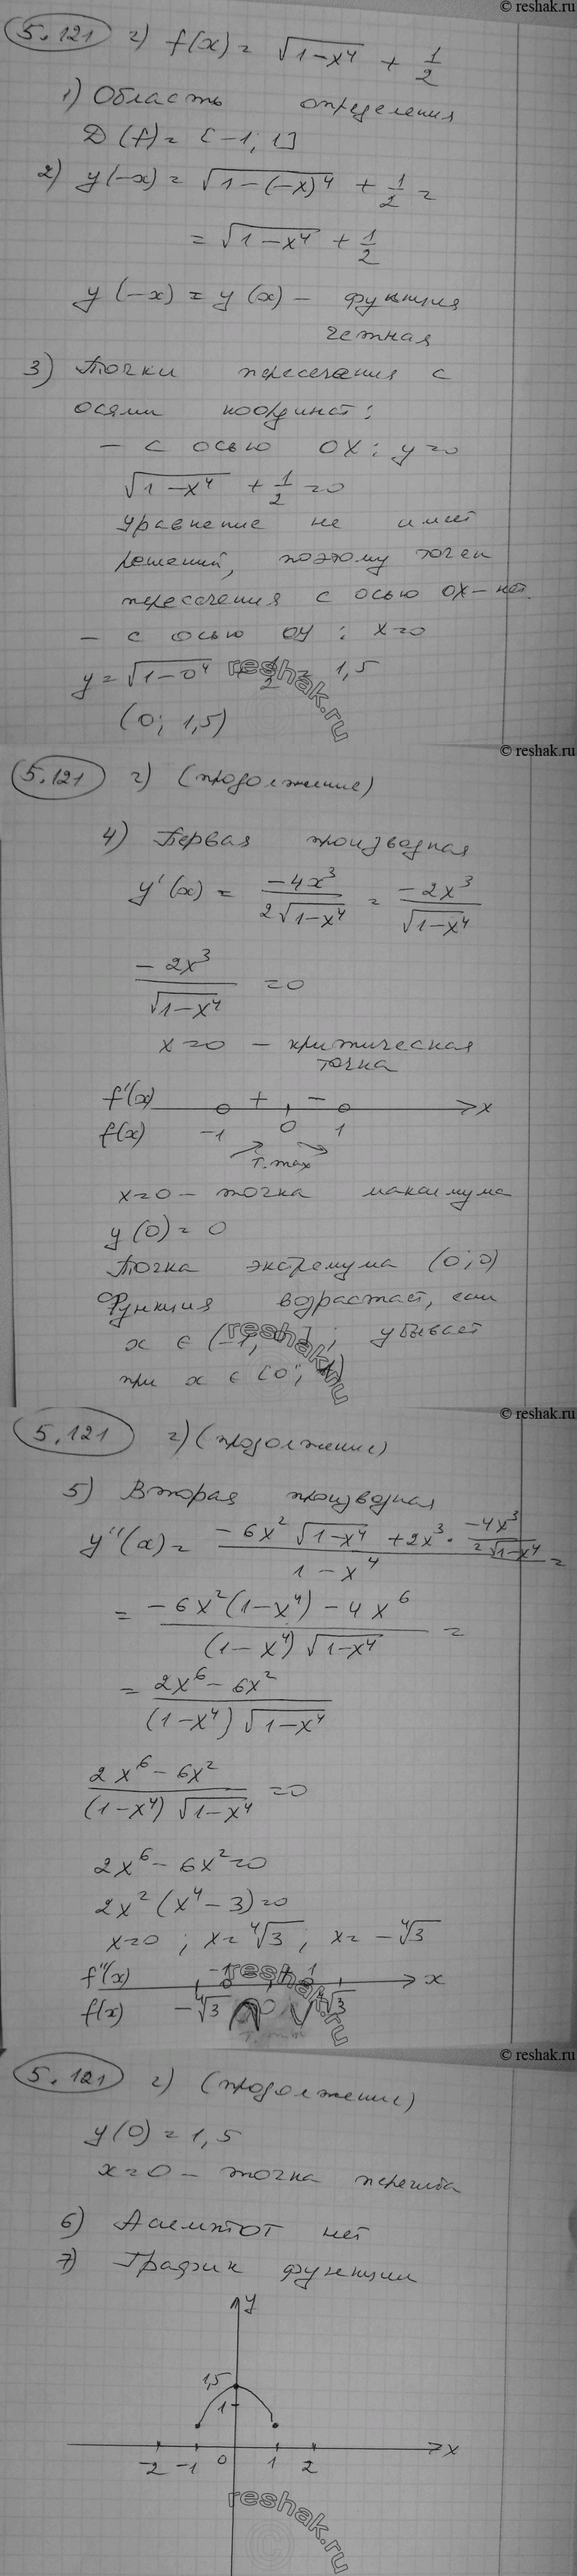 © reshak.ru
5.121 г) f(x) = √(1-x⁴) + 1/2
1) Область определения
D(f) = [-1; 1]
2) y(-x) = √(1-(-x)⁴) + 1/2 =
= √(1-x⁴) + 1/2
y(-x) = y(x) - функция
четная
3) Точки пересечения с
осями координат:
- с осью OX: y=0
√(1-x⁴) + 1/2 = 0
уравнение не имеет
решений, поэтому точек
пересечения с осью OX - нет.
- с осью OY: x=0
y = √(1-0⁴) + 1/2 = 1,5
(0; 1,5)
reshak.ru
© reshak.ru
5.121 г) (продолжение)
4) Первая производная
y'(x) = -4x³/(2√(1-x⁴)) = -2x³/√(1-x⁴)
-2x³/√(1-x⁴) = 0
x=0 - критическая
точка
f'(x) + - x
f(x) -1 0 1
т. max
x=0 - точка максимума
y(0) = 0
Точка экстремума (0;0)
Функция возрастает, если
x ∈ (-1; 0]; убывает
при x ∈ [0; 1)
reshak.ru
© reshak.ru
5.121 г) (продолжение)
5) Вторая производная
y''(x) = (-6x² √(1-x⁴) + 2x³ · -4x³/(2√(1-x⁴)))/(1-x⁴) =
= (-6x²(1-x⁴) - 4x⁶)/((1-x⁴)√(1-x⁴)) =
= (2x⁶ - 6x²)/((1-x⁴)√(1-x⁴))
(2x⁶ - 6x²)/((1-x⁴)√(1-x⁴)) = 0
2x⁶ - 6x² = 0
2x²(x⁴ - 3) = 0
x=0; x=⁴√3; x=-⁴√3
f''(x) -1 1 x
f(x) -⁴√3 0 ⁴√3
reshak.ru
© reshak.ru
5.121 г) (продолжение)
y(0) = 1,5
x=0 - точка перегиба
6) Асимптот нет
7) График функции
y
1,5
1
-2 -1 0 1 2 x
reshak.ru